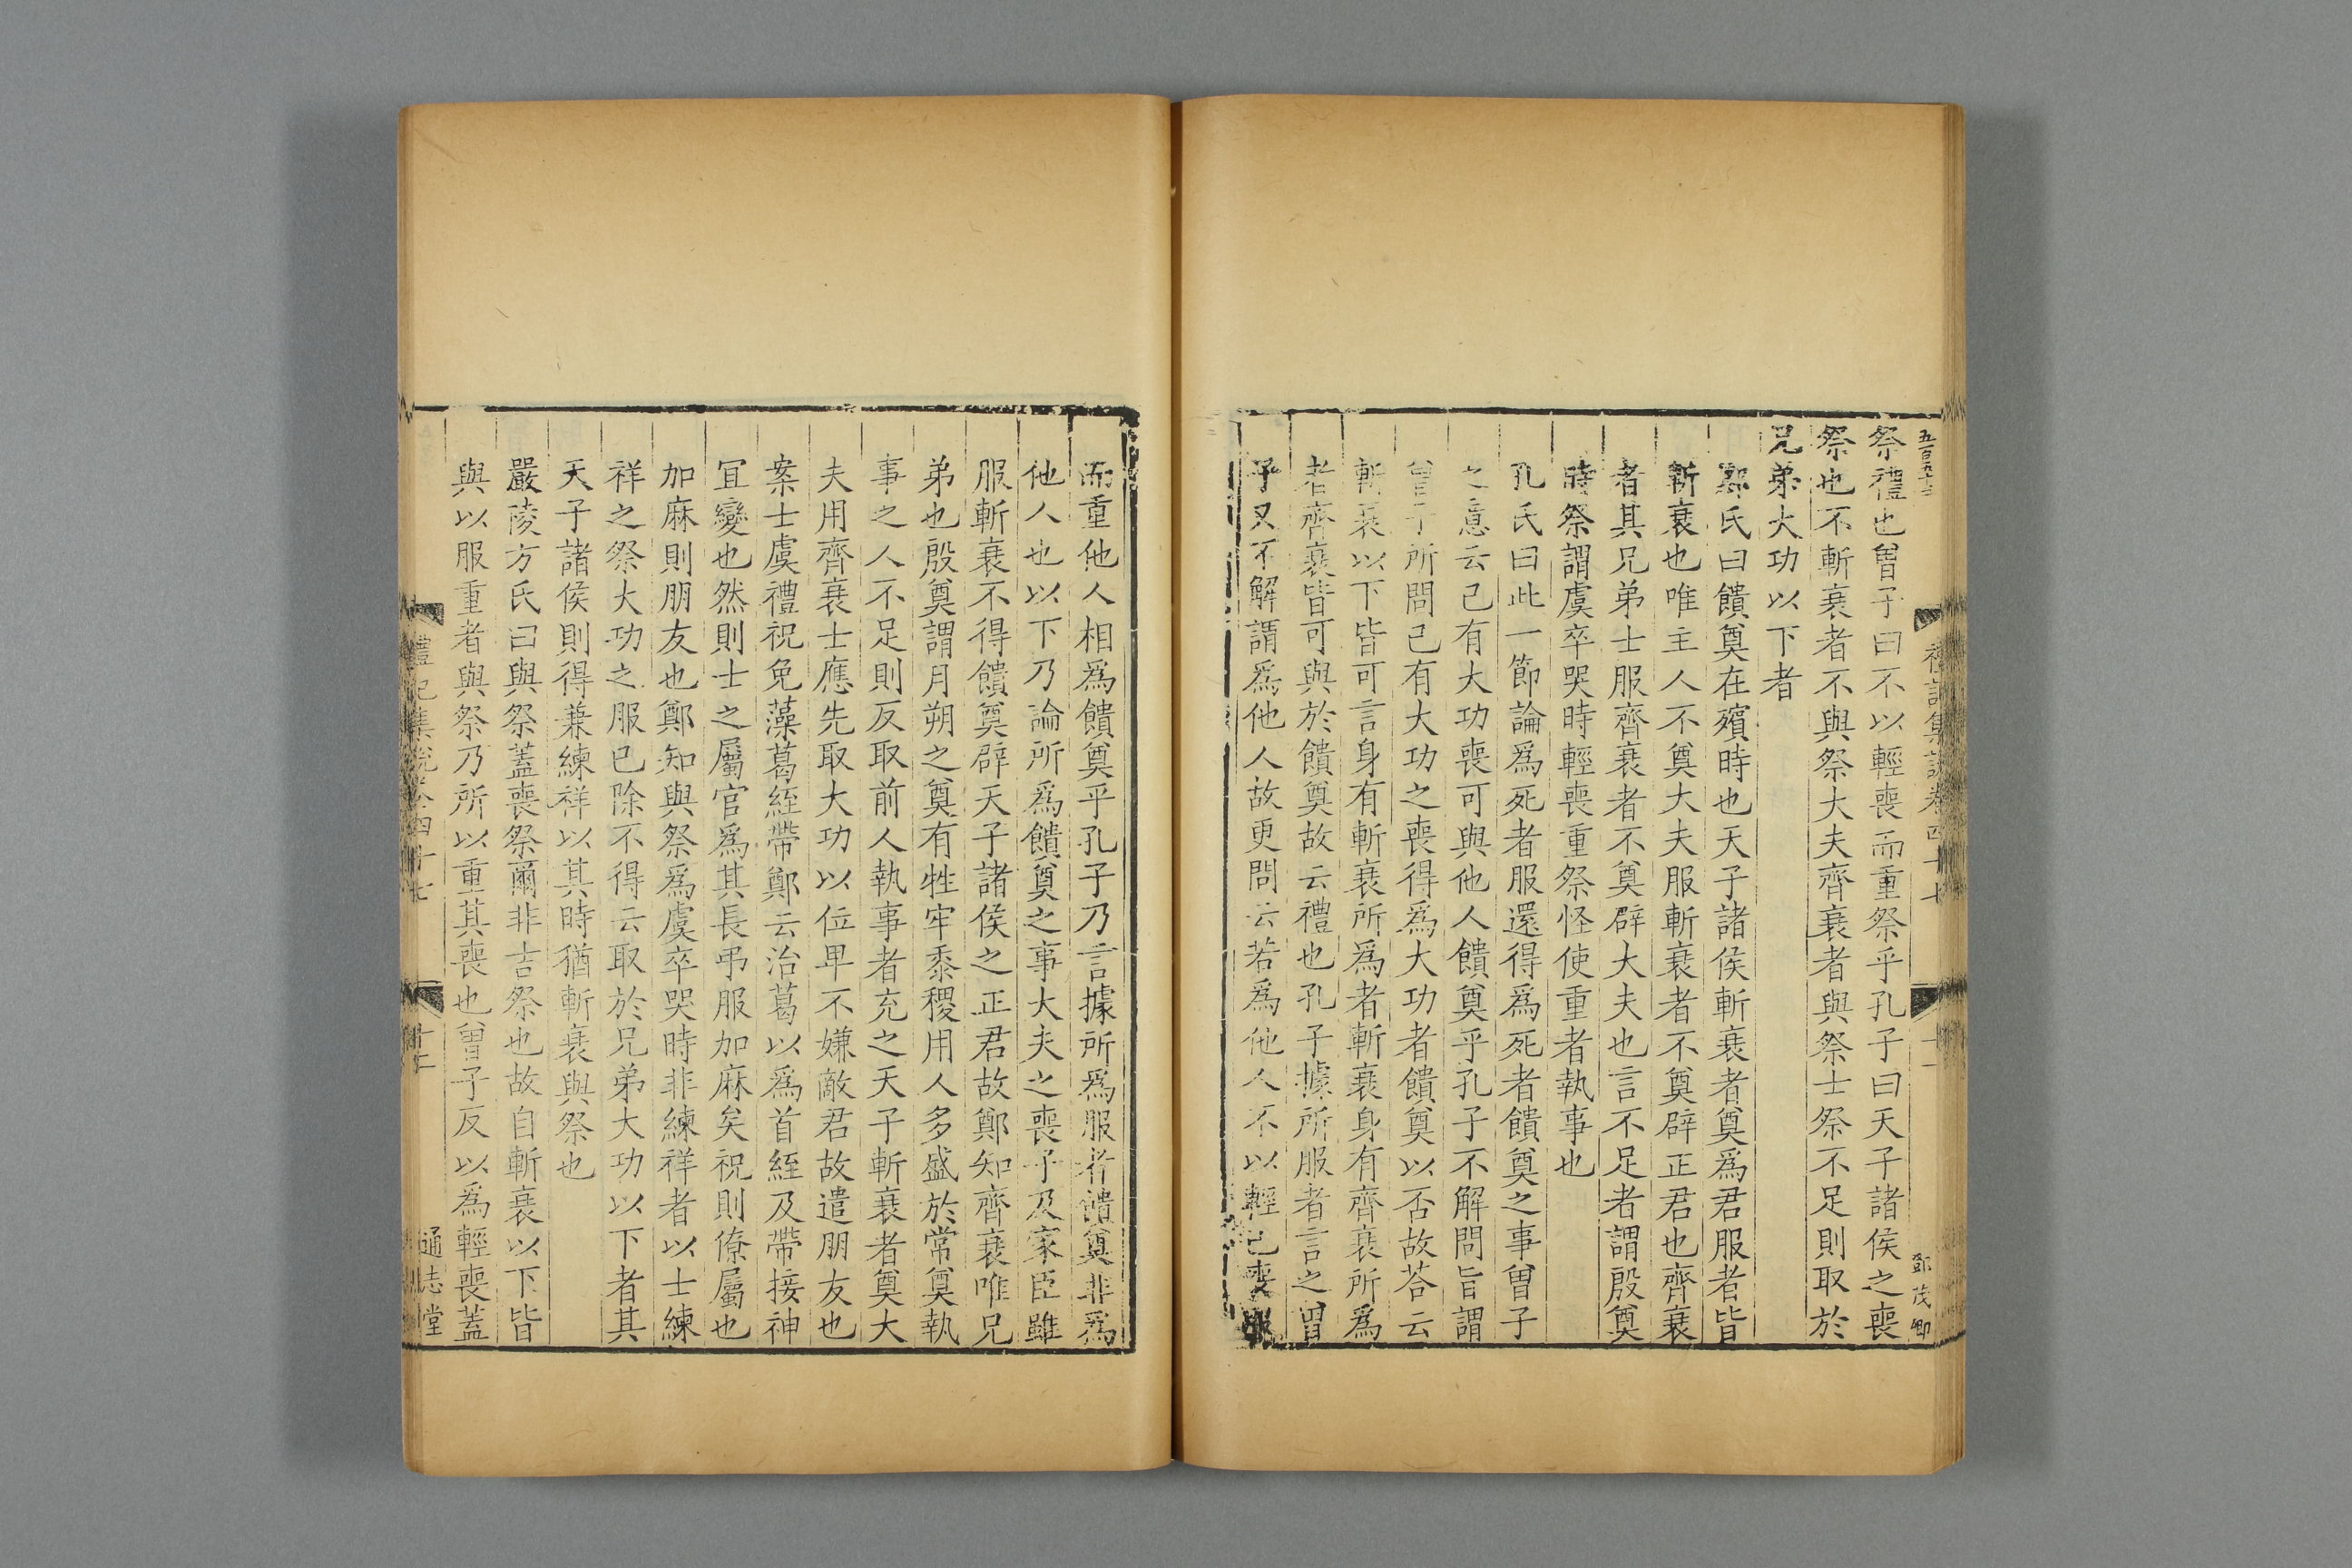 祭禮也曾子曰不以輕喪而重祭乎孔子曰天子諸侯之喪
祭也不斬衰者不與祭大夫齊衰者與祭士祭不足則取於
兄弟大功以下者
鄭氏曰饋奠在殯時也天子諸侯斬衰者奠爲君服者皆
斬衰也唯主人不奠大夫服斬衰者不奠辟正君也齊衰
者其兄弟士服齊衰者不奠辟大夫也言不足者謂殷奠
時祭謂虞卒哭時輕喪重祭怪使重者執事也
孔氏曰此一節論爲死者服還得爲死者饋奠之事曾子
之意云己有大功喪可與他人饋奠乎孔子不解問旨謂
曾子所問己有大功之喪得爲大功者饋奠以否故荅云
斬衰以下皆可言身有斬衰所爲者斬衰身有齊衰所爲
者齊衰皆可與於饋奠故云禮也孔子據所服者言之曾
子又不解謂爲他人故更問云若爲他人不以輕己喪服
禮記集說卷四十七
十一
鄧茂卿
而重他人相爲饋奠乎孔子乃言據所爲服者饋奠非爲
他人也以下乃論所爲饋奠之事大夫之喪子及家臣雖
服斬衰不得饋奠辟天子諸侯之正君故鄭知齊衰唯兄
弟也殷奠謂月朔之奠有牲牢黍稷用人多盛於常奠執
事之人不足則反取前人執事者充之天子斬衰者奠大
夫用齊衰士應先取大功以位卑不嫌敵君故遣朋友也
案士虞禮祝免藻葛絰帶鄭云治葛以爲首絰及帶接神
宜變也然則士之屬官爲其長弔服加麻矣祝則僚屬也
加麻則朋友也鄭知與祭爲虞卒哭時非練祥者以士練
祥之祭大功之服已除不得云取於兄弟大功以下者其
天子諸侯則得兼練祥以其時猶斬衰與祭也
嚴陵方氏曰與祭蓋喪祭爾非吉祭也故自斬衰以下皆
與以服重者與祭乃所以重其喪也曾子反以爲輕喪蓋
禮記集說卷四十七
十二
通志堂